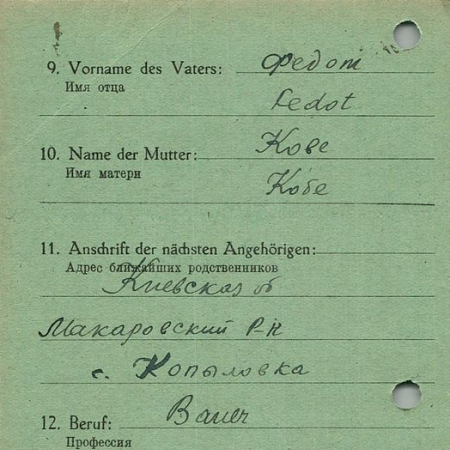 9. Vorname des Vaters: Федот
Имя отца
Fedot
10. Name der Mutter: Кове
Имя матери
Kobe
11. Anschrift der nächsten Angehörigen:
Адрес ближайших родственников
Киевская об
Макаровский Р-н
с. Копыловка
12. Beruf: Bauer
Профессия